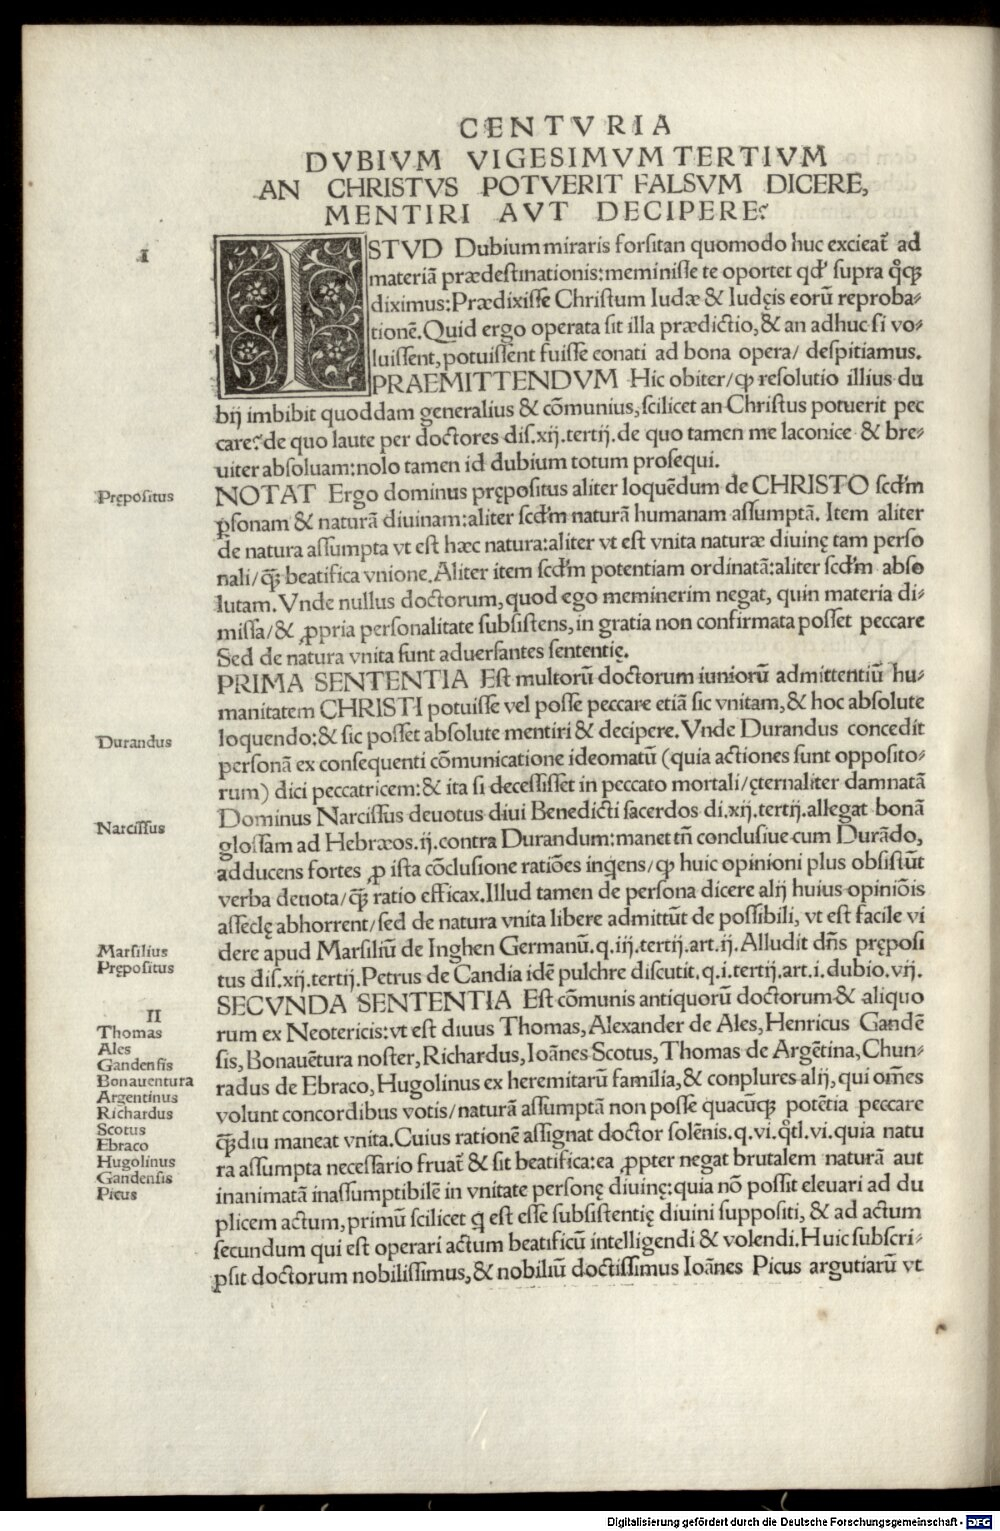 CENTVRIA
DVBIVM VIGESIMVM TERTIVM
AN CHRISTVS POTVERIT FALSVM DICERE,
MENTIRI AVT DECIPERE?
I
ISTVD Dubium miraris forsitan quomodo huc excieat̄ ad
materiā prædestinationis:meminisse te oportet qd' supra
diximus:Prædixisse Christum Iudæ & Iudęis eorū reproba-
tionē.Quid ergo operata sit illa prædictio,& an adhuc si vo-
luissent,potuissent fuisse conati ad bona opera/ despitiamus.
PRAEMITTENDVM Hic obiter/ꝙ resolutio illius du
bij imbibit quoddam generalius & cōmunius,scilicet an Christus potuerit pec
care?de quo laute per doctores dis.xij.tertij.de quo tamen me laconice & bre-
uiter absoluam:nolo tamen id dubium totum prosequi.
Prępositus
NOTAT Ergo dominus prępositus aliter loquēdum de CHRISTO scd'm
ꝑsonam & naturā diuinam:aliter scd'm naturā humanam assumptā. Item aliter
de natura assumpta vt est hæc natura:aliter vt est vnita naturæ diuinę tam perso
nali/q̄ꝫ beatifica vnione.Aliter item scd'm potentiam ordinatā:aliter scd'm abso
lutam.Vnde nullus doctorum,quod ego meminerim negat, quin materia di-
missa/& ꝓpria personalitate subsistens,in gratia non confirmata posset peccare
Sed de natura vnita sunt aduersantes sententię.
PRIMA SENTENTIA Est multorū doctorum iuniorū admittentiū hu-
manitatem CHRISTI potuisse vel posse peccare etiā sic vnitam,& hoc absolute
Durandus
loquendo:& sic posset absolute mentiri & decipere.Vnde Durandus concedit
personā ex consequenti cōmunicatione ideomatū (quia actiones sunt opposito-
rum) dici peccatricem:& ita si decessisset in peccato mortali/ęternaliter damnatā
Narcissus
Dominus Narcissus deuotus diui Benedicti sacerdos di.xij.tertij.allegat bonā
glossam ad Hebræos.ij.contra Durandum:manet tn̄ conclusiue cum Durādo,
adducens fortes ꝓ ista cōclusione ratiōes inqens/ꝙ huic opinioni plus obsistūt
verba deuota/q̄ꝫ ratio efficax.Illud tamen de persona dicere alij huius opiniōis
assedę abhorrent/sed de natura vnita libere admittūt de possibili, vt est facile vi
Marsilius
dere apud Marsiliū de Inghen Germanū.q.iij.tertij.art.ij.Alludit dn̄s pręposi
Prępositus
tus dis.xij.tertij.Petrus de Candia idē pulchre discutit.q.i.tertij.art.i.dubio.vij.
II
SECVNDA SENTENTIA Est cōmunis antiquorū doctorum & aliquo
Thomas
Ales
Gandensis
Bonauentura
Argentinus
Richardus
Scotus
Ebraco
Hugolinus
Gandensis
Picus
rum ex Neotericis:vt est diuus Thomas,Alexander de Ales,Henricus Gandē
sis,Bonauētura noster,Richardus,Ioānes Scotus,Thomas de Argētina,Chun-
radus de Ebraco,Hugolinus ex heremitarū familia,& conplures alij,qui om̄es
volunt concordibus votis/naturā assumptā non posse quacūqꝫ potētia peccare
q̄ꝫdiu maneat vnita.Cuius rationē assignat doctor solēnis.q.vi.qͦtl.vi.quia natu
ra assumpta necessario fruat̄ & sit beatifica:ea ꝓpter negat brutalem naturā aut
inanimatā inassumptibilē in vnitate personę diuinę:quia nō possit eleuari ad du
plicem actum,primū scilicet q est esse subsistentię diuini suppositi, & ad actum
secundum qui est operari actum beatificū intelligendi & volendi.Huic subscri-
psit doctorum nobilissimus,& nobiliū doctissimus Ioānes Picus argutiarū vt
Digitalisierung gefördert durch die Deutsche Forschungsgemeinschaft - DFG